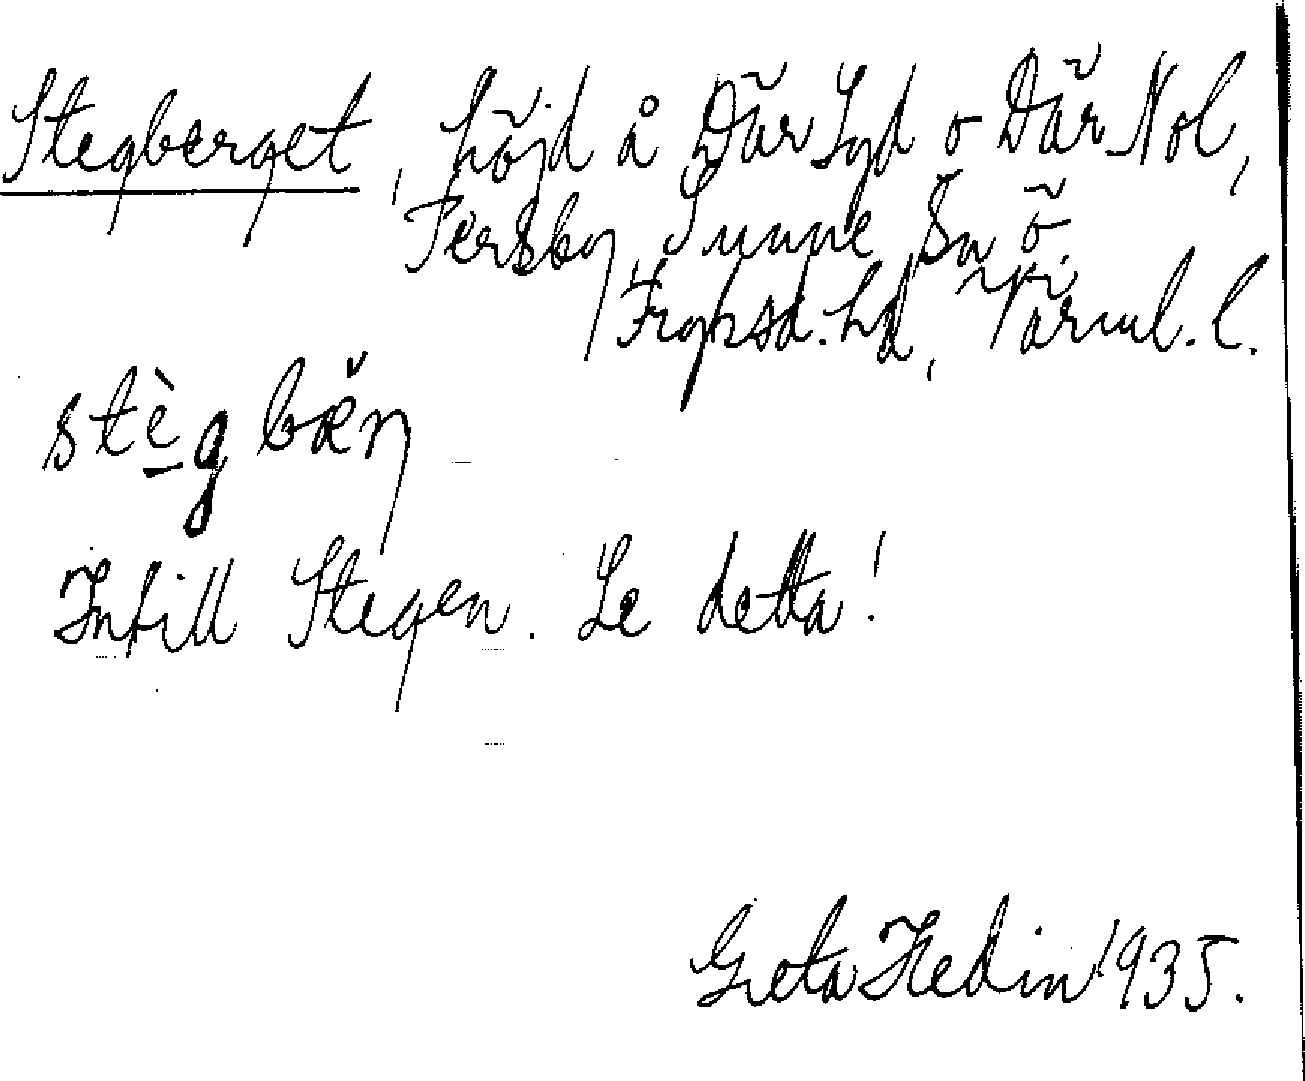 Stegberget, höjd å Där Syd o Där Nol,
Persby, Sunne Sn ö,
Fryksd. hd, Värml. l.
stègbæ̆n
Intill Stegen. Se detta!
Greta Hedin 1935.